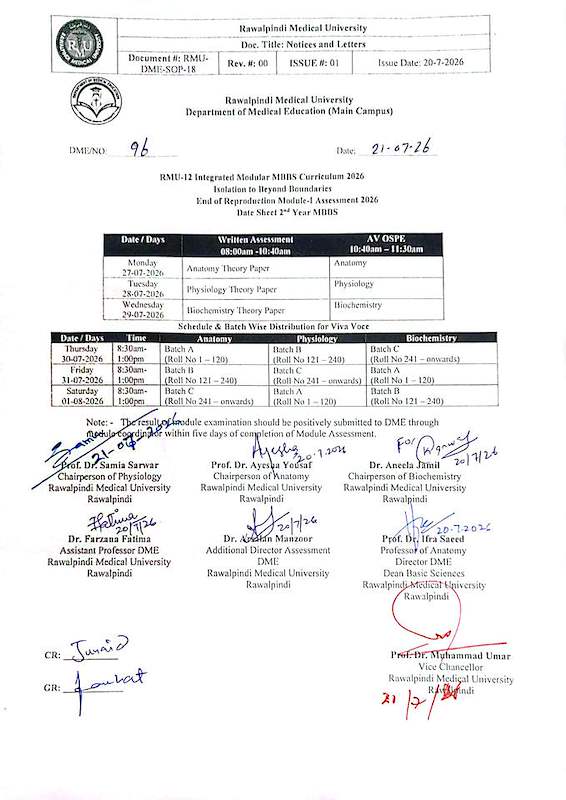 Rawalpindi Medical University
Doc. Title: Notices and Letters
Document #: RMU-DME-SOP-18 Rev. #: 00 ISSUE #: 01 Issue Date: 20-7-2026
Rawalpindi Medical University
Department of Medical Education (Main Campus)
DME/NO: 96 Date: 21-07-26
RMU-12 Integrated Modular MBBS Curriculum 2026
Isolation to Beyond Boundaries
End of Reproduction Module-I Assessment 2026
Date Sheet 2nd Year MBBS
Date / Days Written Assessment 08:00am -10:40am AV OSPE 10:40am – 11:30am
Monday 27-07-2026 Anatomy Theory Paper Anatomy
Tuesday 28-07-2026 Physiology Theory Paper Physiology
Wednesday 29-07-2026 Biochemistry Theory Paper Biochemistry
Schedule & Batch Wise Distribution for Viva Voce
Date / Days Time Anatomy Physiology Biochemistry
Thursday 30-07-2026 8:30am-1:00pm Batch A (Roll No 1 – 120) Batch B (Roll No 121 – 240) Batch C (Roll No 241 – onwards)
Friday 31-07-2026 8:30am-1:00pm Batch B (Roll No 121 – 240) Batch C (Roll No 241 – onwards) Batch A (Roll No 1 – 120)
Saturday 01-08-2026 8:30am-1:00pm Batch C (Roll No 241 – onwards) Batch A (Roll No 1 – 120) Batch B (Roll No 121 – 240)
Note: - The result of module examination should be positively submitted to DME through
module coordinator within five days of completion of Module Assessment.
21-07-2026
Prof. Dr. Samia Sarwar
Chairperson of Physiology
Rawalpindi Medical University
Rawalpindi
Ayesha
20-7-2026
Prof. Dr. Ayesha Yousaf
Chairperson of Anatomy
Rawalpindi Medical University
Rawalpindi
For
20/7/26
Dr. Aneela Jamil
Chairperson of Biochemistry
Rawalpindi Medical University
Rawalpindi
Fatima
20/7/26
Dr. Farzana Fatima
Assistant Professor DME
Rawalpindi Medical University
Rawalpindi
20/7/26
Dr. Arsalan Manzoor
Additional Director Assessment
DME
Rawalpindi Medical University
Rawalpindi
20-7-2026
Prof. Dr. Ifra Saeed
Professor of Anatomy
Director DME
Dean Basic Sciences
Rawalpindi Medical University
Rawalpindi
CR: Junaid
GR:
Prof. Dr. Muhammad Umar
Vice Chancellor
Rawalpindi Medical University
Rawalpindi
21/7/26